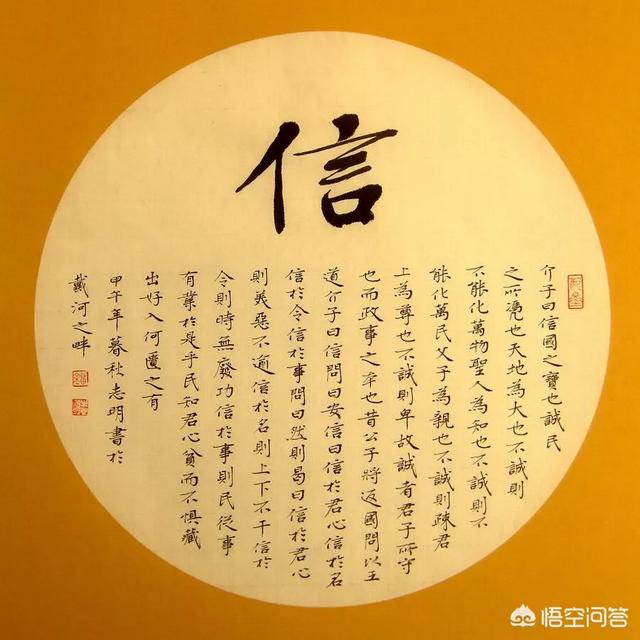 信
介子曰信國之寶也誠民
之所凴也天地為大也不誠則
不能化萬物聖人為知也不誠則不
能化萬民父子為親也不誠則疎君
上為尊也不誠則卑故誠者君子所守
也而政事之本也昔公子將返國問以王
道介子曰信問曰安信曰信於君心信於名
信於令信於事問曰然則曷曰信於君心
則美惡不逾信於名則上下不干信於
令則時無廢功信於事則民從事
有業於是乎民知君心貧而不懼藏
出好入何匱之有
甲午年暮秋志明書於
戴河之畔
悟空问答